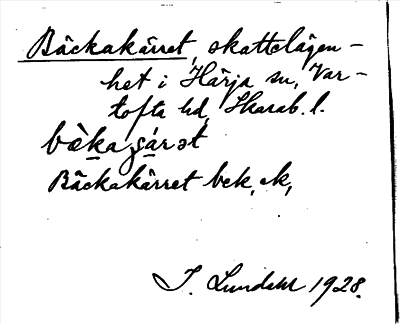 Bäckakärret, skattelägen-
het i Härja sn, Var-
tofta hd, Skarab. l.
bæ̀ka ʂárət
Bäckakärret bek, ek,
I. Lundahl 1928.